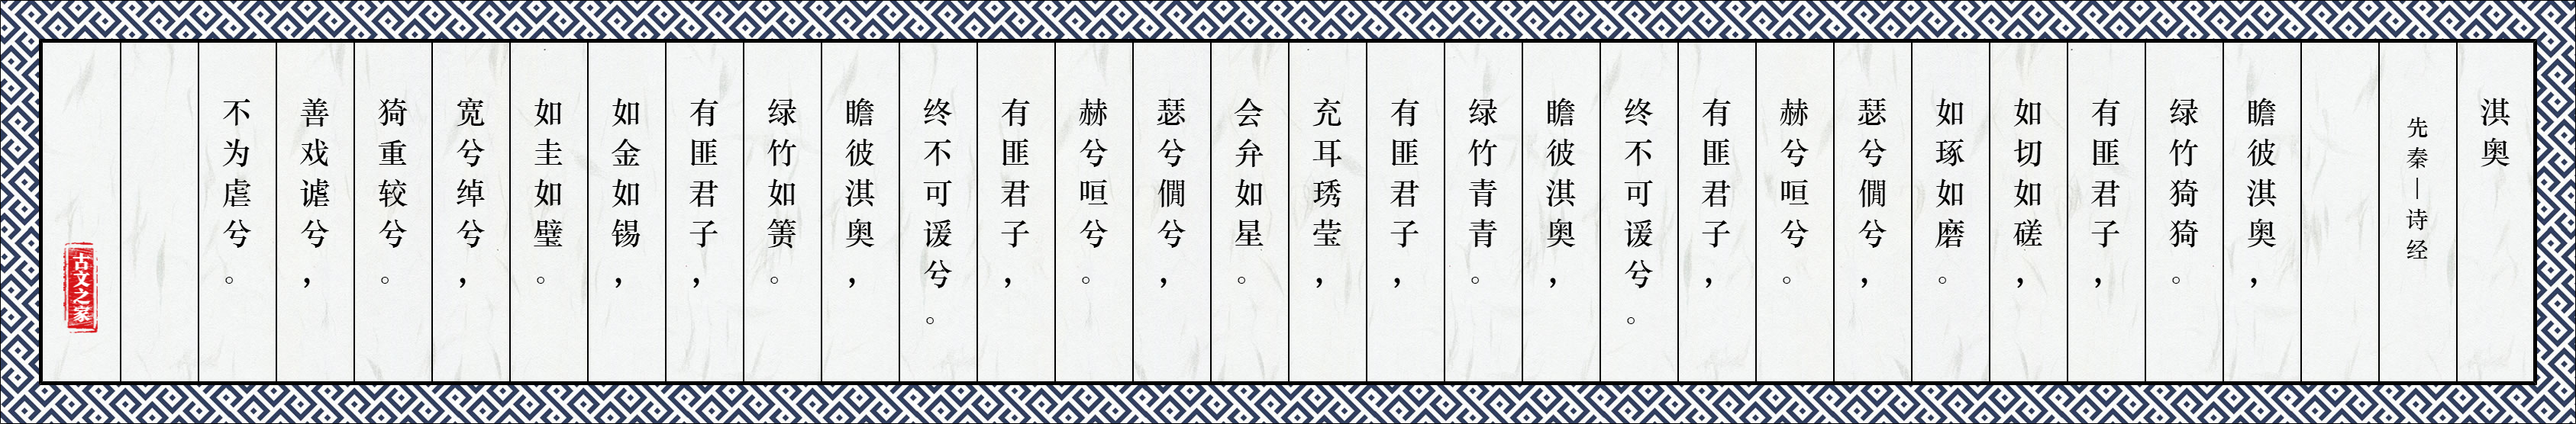 淇奥
先秦—诗经
瞻彼淇奥，
绿竹猗猗。
有匪君子，
如切如磋，
如琢如磨。
瑟兮僩兮，
赫兮咺兮。
有匪君子，
终不可谖兮。
瞻彼淇奥，
绿竹青青。
有匪君子，
充耳琇莹，
会弁如星。
瑟兮僩兮，
赫兮咺兮。
有匪君子，
终不可谖兮。
瞻彼淇奥，
绿竹如箦。
有匪君子，
如金如锡，
如圭如璧。
宽兮绰兮，
猗重较兮。
善戏谑兮，
不为虐兮。
古文之家